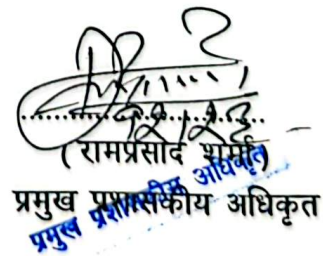 (रामप्रसाद शर्मा)
प्रमुख प्रशासकीय अधिकृत
प्रमुख प्रशासकीय अधिकृत